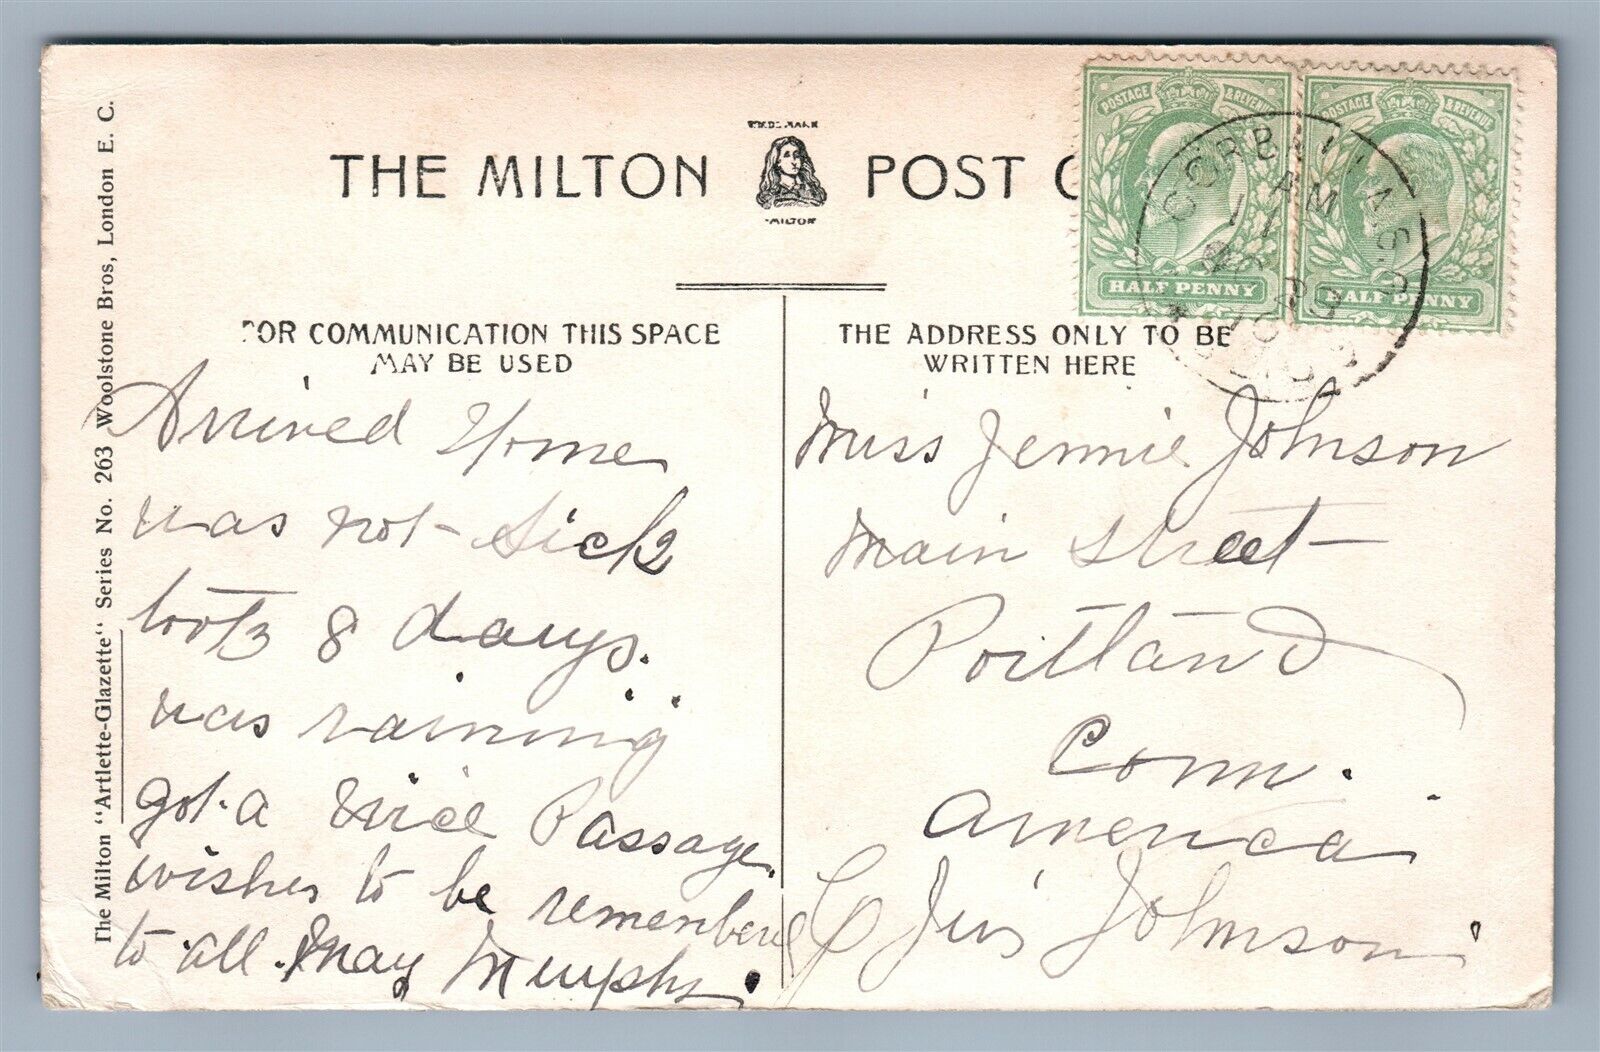 The Milton "Artlette-Glazette" Series No. 263 Woolstone Bros, London E. C.
TRADE MARK
THE MILTON POST C
MILTON
POSTAGE & REVENUE
HALF PENNY
POSTAGE & REVENUE
HALF PENNY
AM
11
FOR COMMUNICATION THIS SPACE
MAY BE USED
Arrived Home
was not sick
took 8 days.
was raining
got a nice Passage
wishes to be remenbered
to all. May Murphy.
THE ADDRESS ONLY TO BE
WRITTEN HERE
Miss Jennie Johnson
Main street
Portland
Conn.
America
Johnson